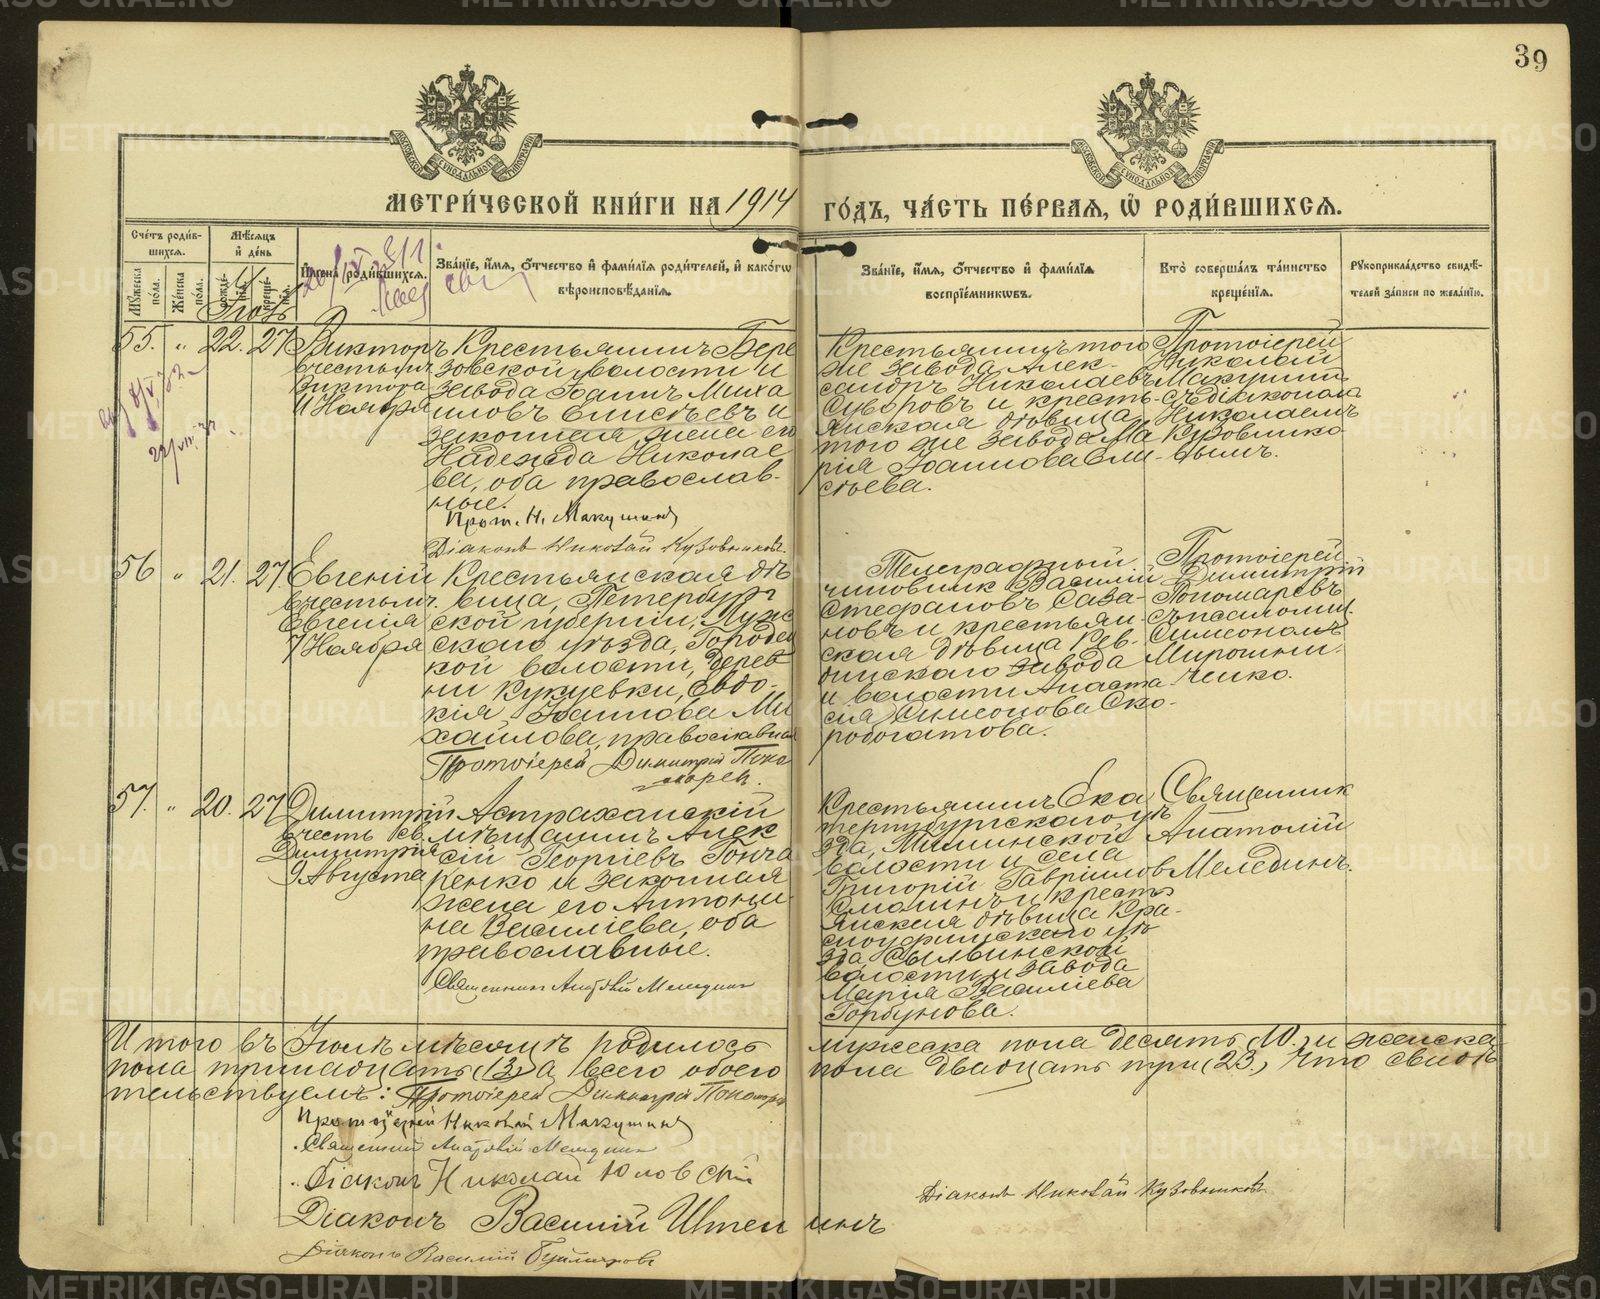 39
МОСКОВСКОЙ СѴНОДАЛЬНОЙ ТИПОГРАФІИ
МОСКОВСКОЙ СѴНОДАЛЬНОЙ ТИПОГРАФІИ
МЕТРИ́ЧЕСКОЙ КНИ́ГИ НА 1914 ГО́ДЪ, ЧА́СТЬ ПЕ́РВАЯ, Ѡ҆ РОДИ́ВШИХСЯ.
Сче́тъ роди́вшихся.
Му́жеска по́ла.
Же́нска по́ла.
Мѣ́сяцъ и҆ де́нь
рожде́нїѧ.
креще́нїѧ.
Іюль
И҆мена̀ роди́вшихся.
Зва́нїе, и҆́мя, ѻ҆́тчество и҆ фами́лїя роди́телей, и҆ како́гѡ
вѣроисповѣ́данїя.
Зва́нїе, и҆́мя, ѻ҆́тчество и҆ фами́лїя
воспрїе́мникѡвъ.
Кто̀ соверша́лъ та́инство
креще́нїя.
Рꙋкоприкла́дство свидѣ́-
телей за́писи по жела́нїю.
55. " 22. 27
Викторъ
в честь мч.
Виктора
11 Ноября
Крестьянинъ Бере
зовской волости и
завода Іоаннъ Миха
иловъ Елисѣевъ и
законная жена его
Надежда Николае
ва, оба православ-
ные.
Прот. Н. Макушинъ
Діаконъ Николай Кузовниковъ
Крестьянинъ того
же завода Алек-
сандръ Николаевъ
Суворовъ и кресть-
янская дѣвица
того же завода Ма
рія Іоаннова Ели-
сѣева.
Протоіерей
Николай
Макушинъ
съ діакономъ
Николаемъ
Кузовнико-
вымъ.
56 " 21. 27.
Евгеній
в честь мч.
Евгенія
7 Ноября
Крестьянская дѣ
вица, Петербург
ской губерніи, Луж
скаго уѣзда, Городец
кой волости, дерев
ни Кукуевки, Евдо-
кія Іоаннова Ми
хайлова, православная
Протоіерей Димитрій Поно
марев.
Телеграфный
чиновникъ Василій
Стефановъ Саза-
новъ и крестьян-
ская дѣвица Рев-
динскаго завода
и волости Анаста-
сія Симеонова Ско-
робогатова.
Протоіерей
Димитрій
Пономаревъ
съ псаломщ.
Симеономъ
Мирошни-
ченко.
57. " 20. 27
Димитрій
в честь св.
Димитрія
9 Августа
Астраханскій
мѣщанинъ Алек
сій Георгіевъ Гонча
ренко и законная
жена его Антони-
на Василіева, оба
православные.
Священникъ Анатолій Меледин
Крестьянинъ Ека
теринбургскаго уѣ
зда, Мѣшинской
волости и села
Григорій Гавріиловъ
Смолинъ и кресть
янская дѣвица Кра-
сноуфимскаго уѣ
зда, Сылвинской
волости и завода
Марія Василіева
Горбунова.
Священник
Анатолій
Мелединъ.
Итого въ Іюлѣ мѣсяцѣ родилось мужеска пола десять (10) и женска
пола тринадцать (13) а всего обоего пола двадцать три (23), что свидѣ
тельствуемъ: Протоіерей Димитрій Пономаревъ
Протоіерей Николай Макушинъ
Священникъ Анатолій Меледин
Діаконъ Николай Юловскій
Діаконъ Николай Кузовниковъ
Діаконъ Василій Штенинъ
METRIKI.GASO-URAL.RU